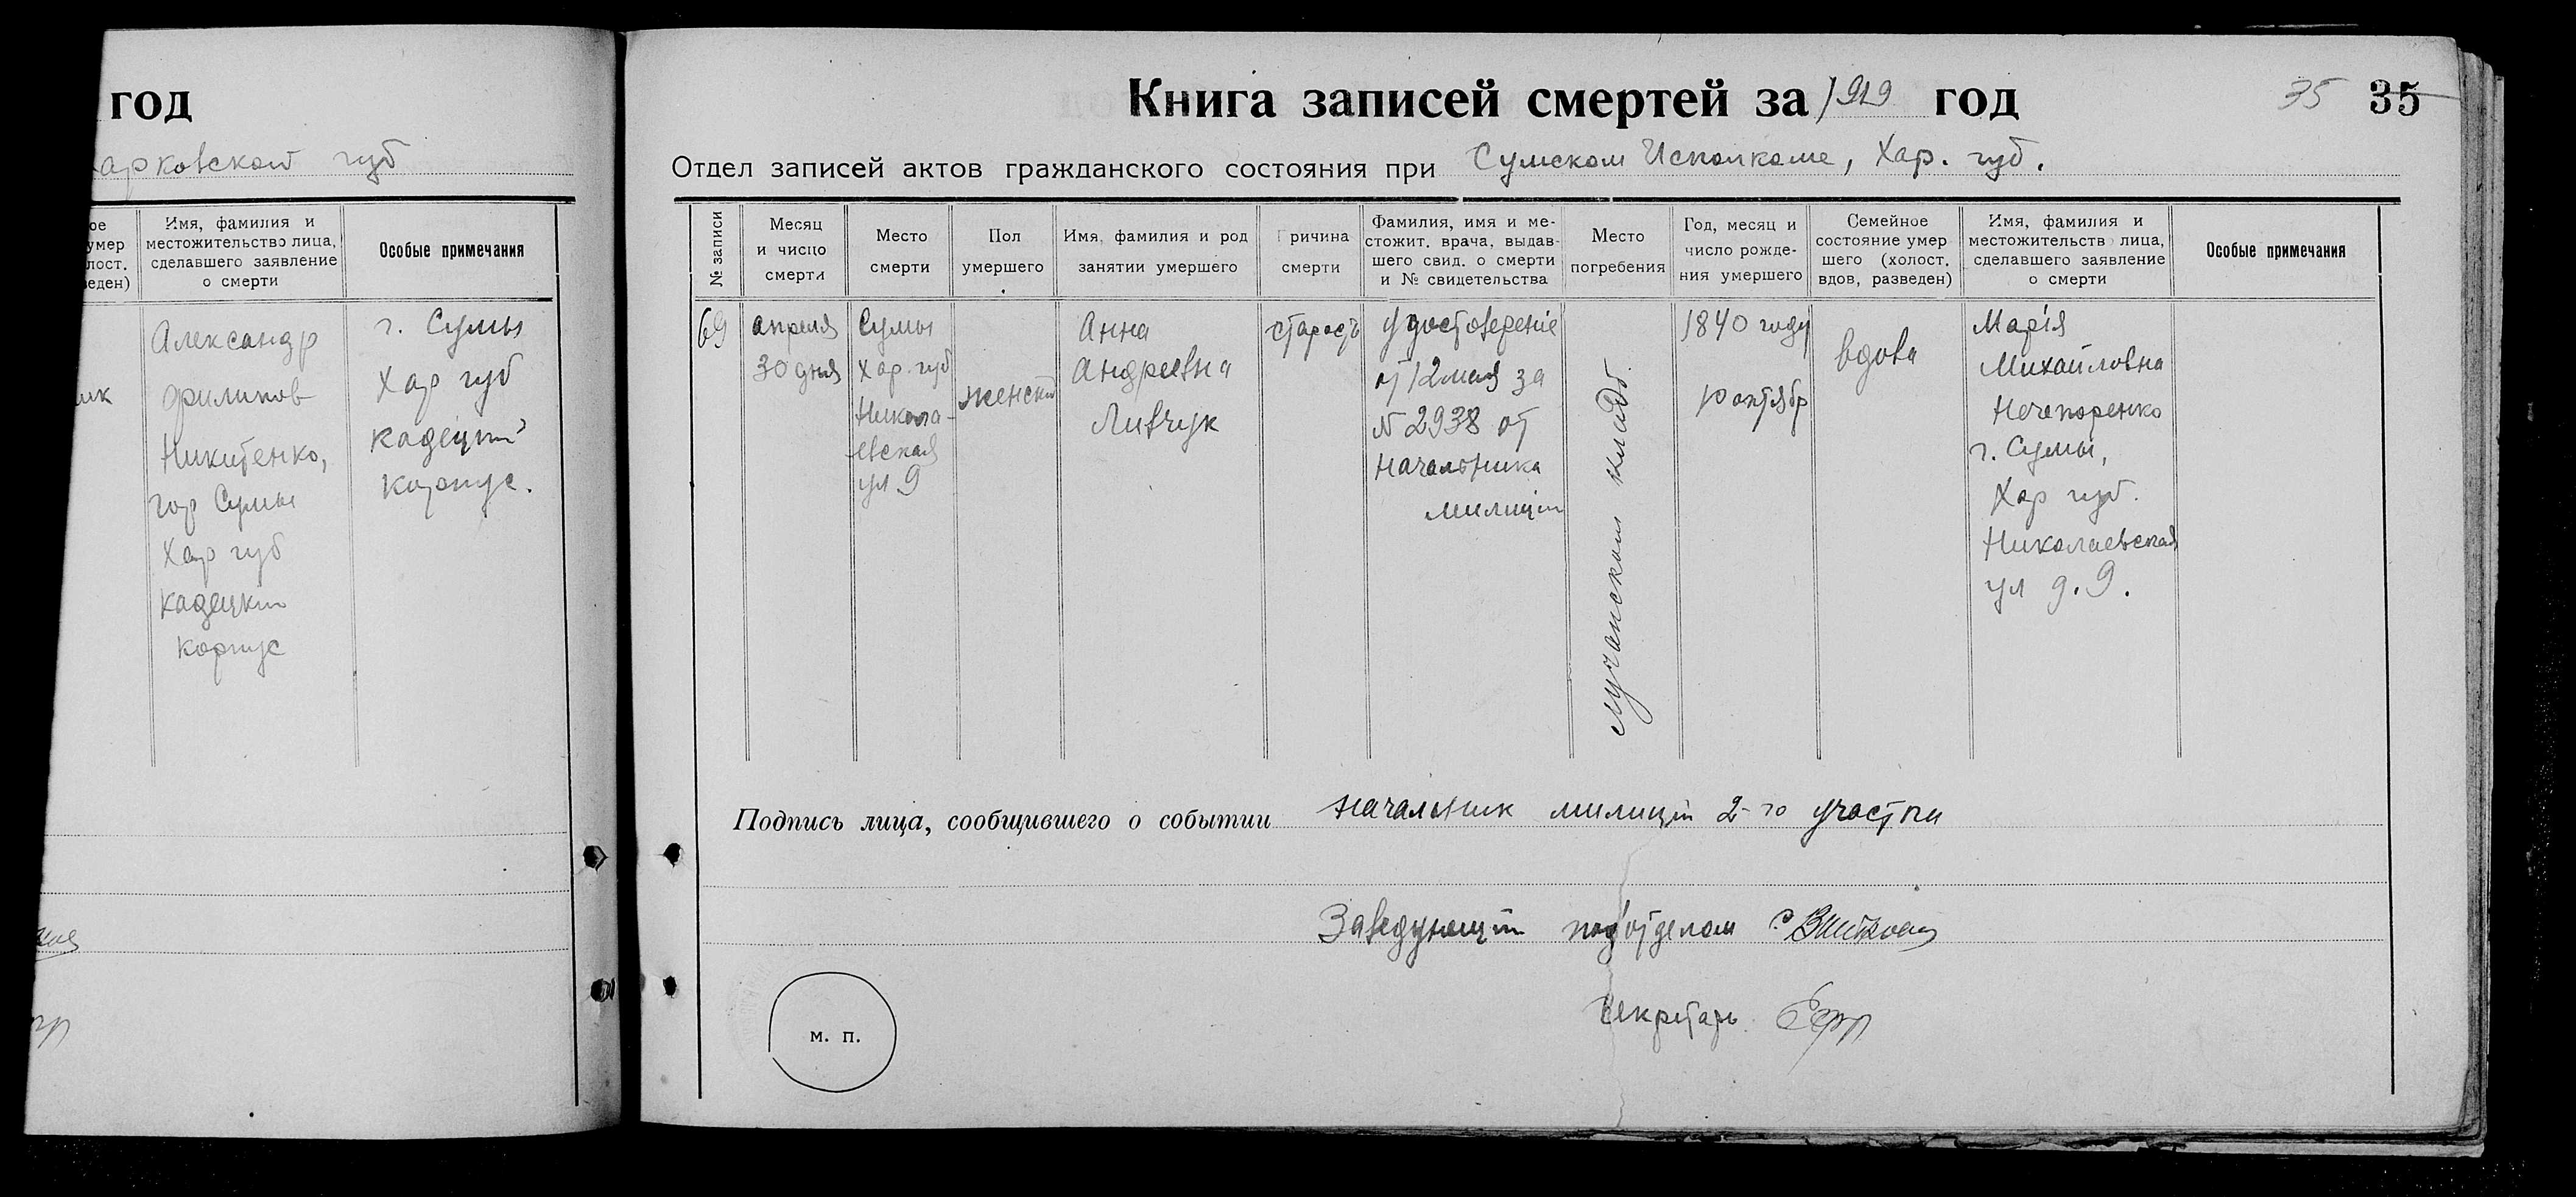 год
арковской губ
ое
умер
лост.
веден)
Имя, фамилия и
местожительство лица,
сделавшего заявление
о смерти
Особые примечания
ик
Александр
Филипов
Никитенко,
гор Сумы
Хар губ
кадецкій
корпус
г. Сумы
Хар губ
кадецкій
корпус.
Книга записей смертей за 1919 год
35 35
Отдел записей актов гражданского состояния при Сумском Исполкоме, Хар. губ.
№ записи
Месяц
и число
смерти
Место
смерти
Пол
умершего
Имя, фамилия и род
занятии умершего
Причина
смерти
Фамилия, имя и ме-
стожит. врача, выдав-
шего свид. о смерти
и № свидетельства
Место
погребения
Год, месяц и
число рожде-
ния умершего
Семейное
состояние умер
шего (холост,
вдов, разведен)
Имя, фамилия и
местожительств лица,
сделавшего заявление
о смерти
Особые примечания
69
апреля
30 дня
Сумы
Хар. губ
Никола-
евская
ул 9
женскій
Анна
Андреевна
Ливчук
старость
Удостоверение
от 12 мая за
№ 2938 от
Начальника
милиціи
Лучанском кладб.
1840 году
10 октябр
вдова
Марія
Михайловна
Нечепоренко
г. Сумы,
Хар губ.
Николаевская
ул д. 9.
Подпись лица, сообщившего о событии Начальник милиціи 2-го участка
Заведующій подотделом
Секретарь
м. п.